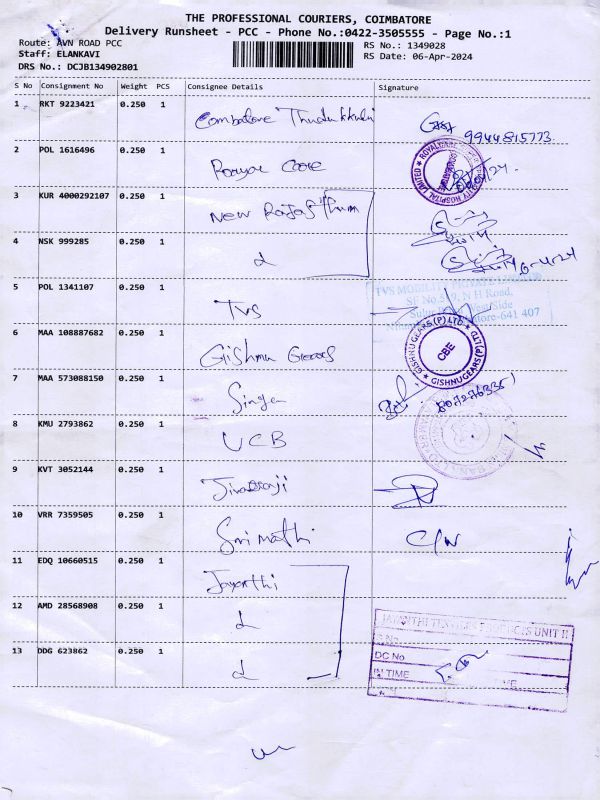 THE PROFESSIONAL COURIERS, COIMBATORE
Delivery Runsheet - PCC - Phone No.:0422-3505555 - Page No.:1
Route: AVN ROAD PCC
RS No.: 1349028
Staff: ELANKAVI
RS Date: 06-Apr-2024
DRS No.: DCJB134902801
S No Consignment No Weight PCS Consignee Details Signature
1 RKT 9223421 0.250 1 9944815773
2 POL 1616496 0.250 1 Care
3 KUR 4000292107 0.250 1 New Rajasthan
4 NSK 999285 0.250 1
5 POL 1341107 0.250 1 TVS
TVS MOBILITY PRIVATE LIMITED
SF No.                N H Road,
Sulur             West Side
641 407
6 MAA 108887682 0.250 1 Gishnu Gears
GISHNU GEARS (P) LTD
CBE
7 MAA 573088150 0.250 1
8 KMU 2793862 0.250 1 UCB
9 KVT 3052144 0.250 1
10 VRR 7359505 0.250 1 Srimathi
11 EDQ 10660515 0.250 1 Jayanthi
12 AMD 28568908 0.250 1
JAYANTHI TEXTILES PRODUCTS UNIT II
S.No
13 DDG 623862 0.250 1
DC No
IN TIME